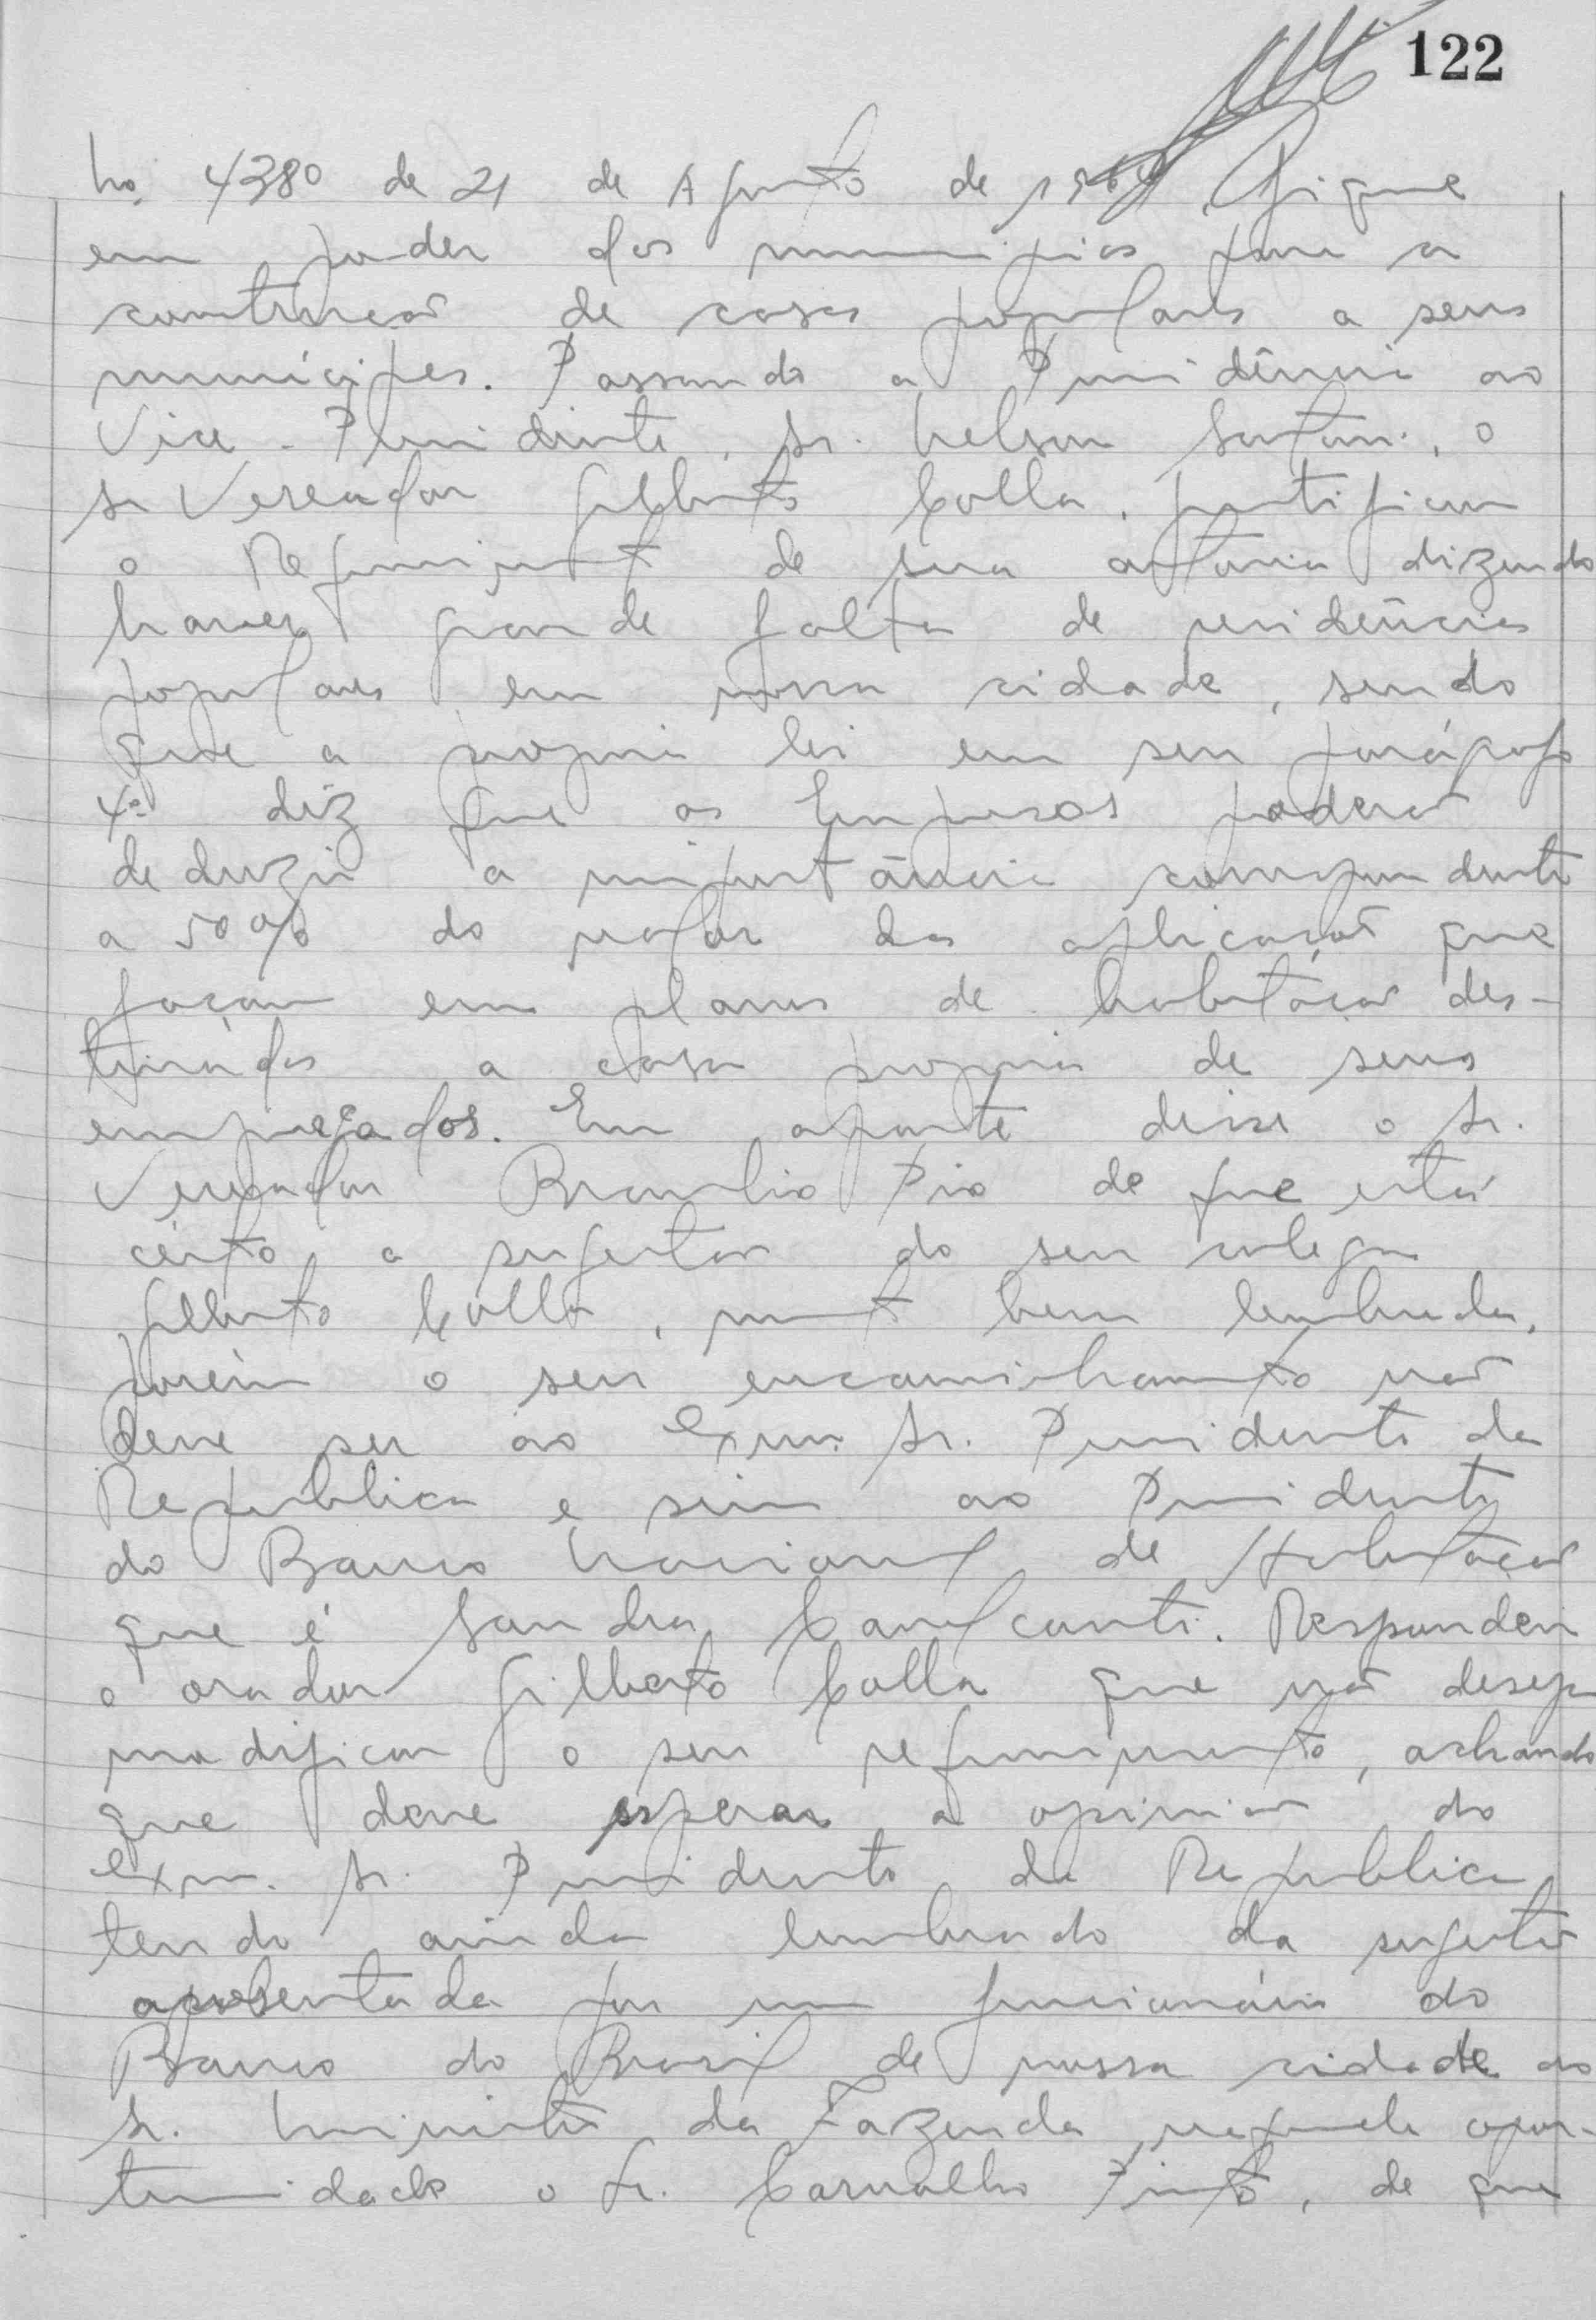 122
No. 4380 de 21 de Agosto de 1964, fique
em poder dos municipios para a
construção de casas populares a seus
munícipes. Passando a Presidência ao
Vice-Presidente, Sr. Nelson, o
Sr Vereador Gilberto Colla, justificou
o Requerimento de sua autoria dizendo
haver grande falta de residências
populares em nossa cidade, sendo
que a propria lei em seu parágrafo
4º diz que as Empresas poderão
deduzir a importância correspondente
a 50% do valor das aplicações que
façam em planos de habitação des-
tinados a casa propria de seus
empregados. Em aparte disse o Sr.
Vereador Braulio Pio de que está
certo a sugestão do seu colega
Gilberto Colla, muito bem lembrada,
porém o seu encaminhamento não
deve ser ao Exmo. Sr. Presidente da
Republica e sim ao Presidente
do Banco Nacional de Habitação
que é Sandra Cavalcanti. Respondeu
o orador Gilberto Colla que não deseja
modificar o seu requerimento, achando
que deve esperar a opinião do
Exmo. Sr. Presidente da Republica
tendo ainda lembrado da sugestão
apresentada por um funcionário do
Banco do Brasil de nossa cidade ao
Sr. Ministro da Fazenda, naquela opor-
tunidade o Sr. Carvalho Pinto, de que